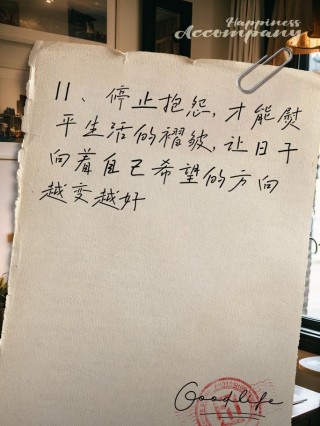 Happiness
Accompany
11、停止抱怨，才能熨
平生活的褶皱，让日子
向着自己希望的方向
越变越好
Goodlife